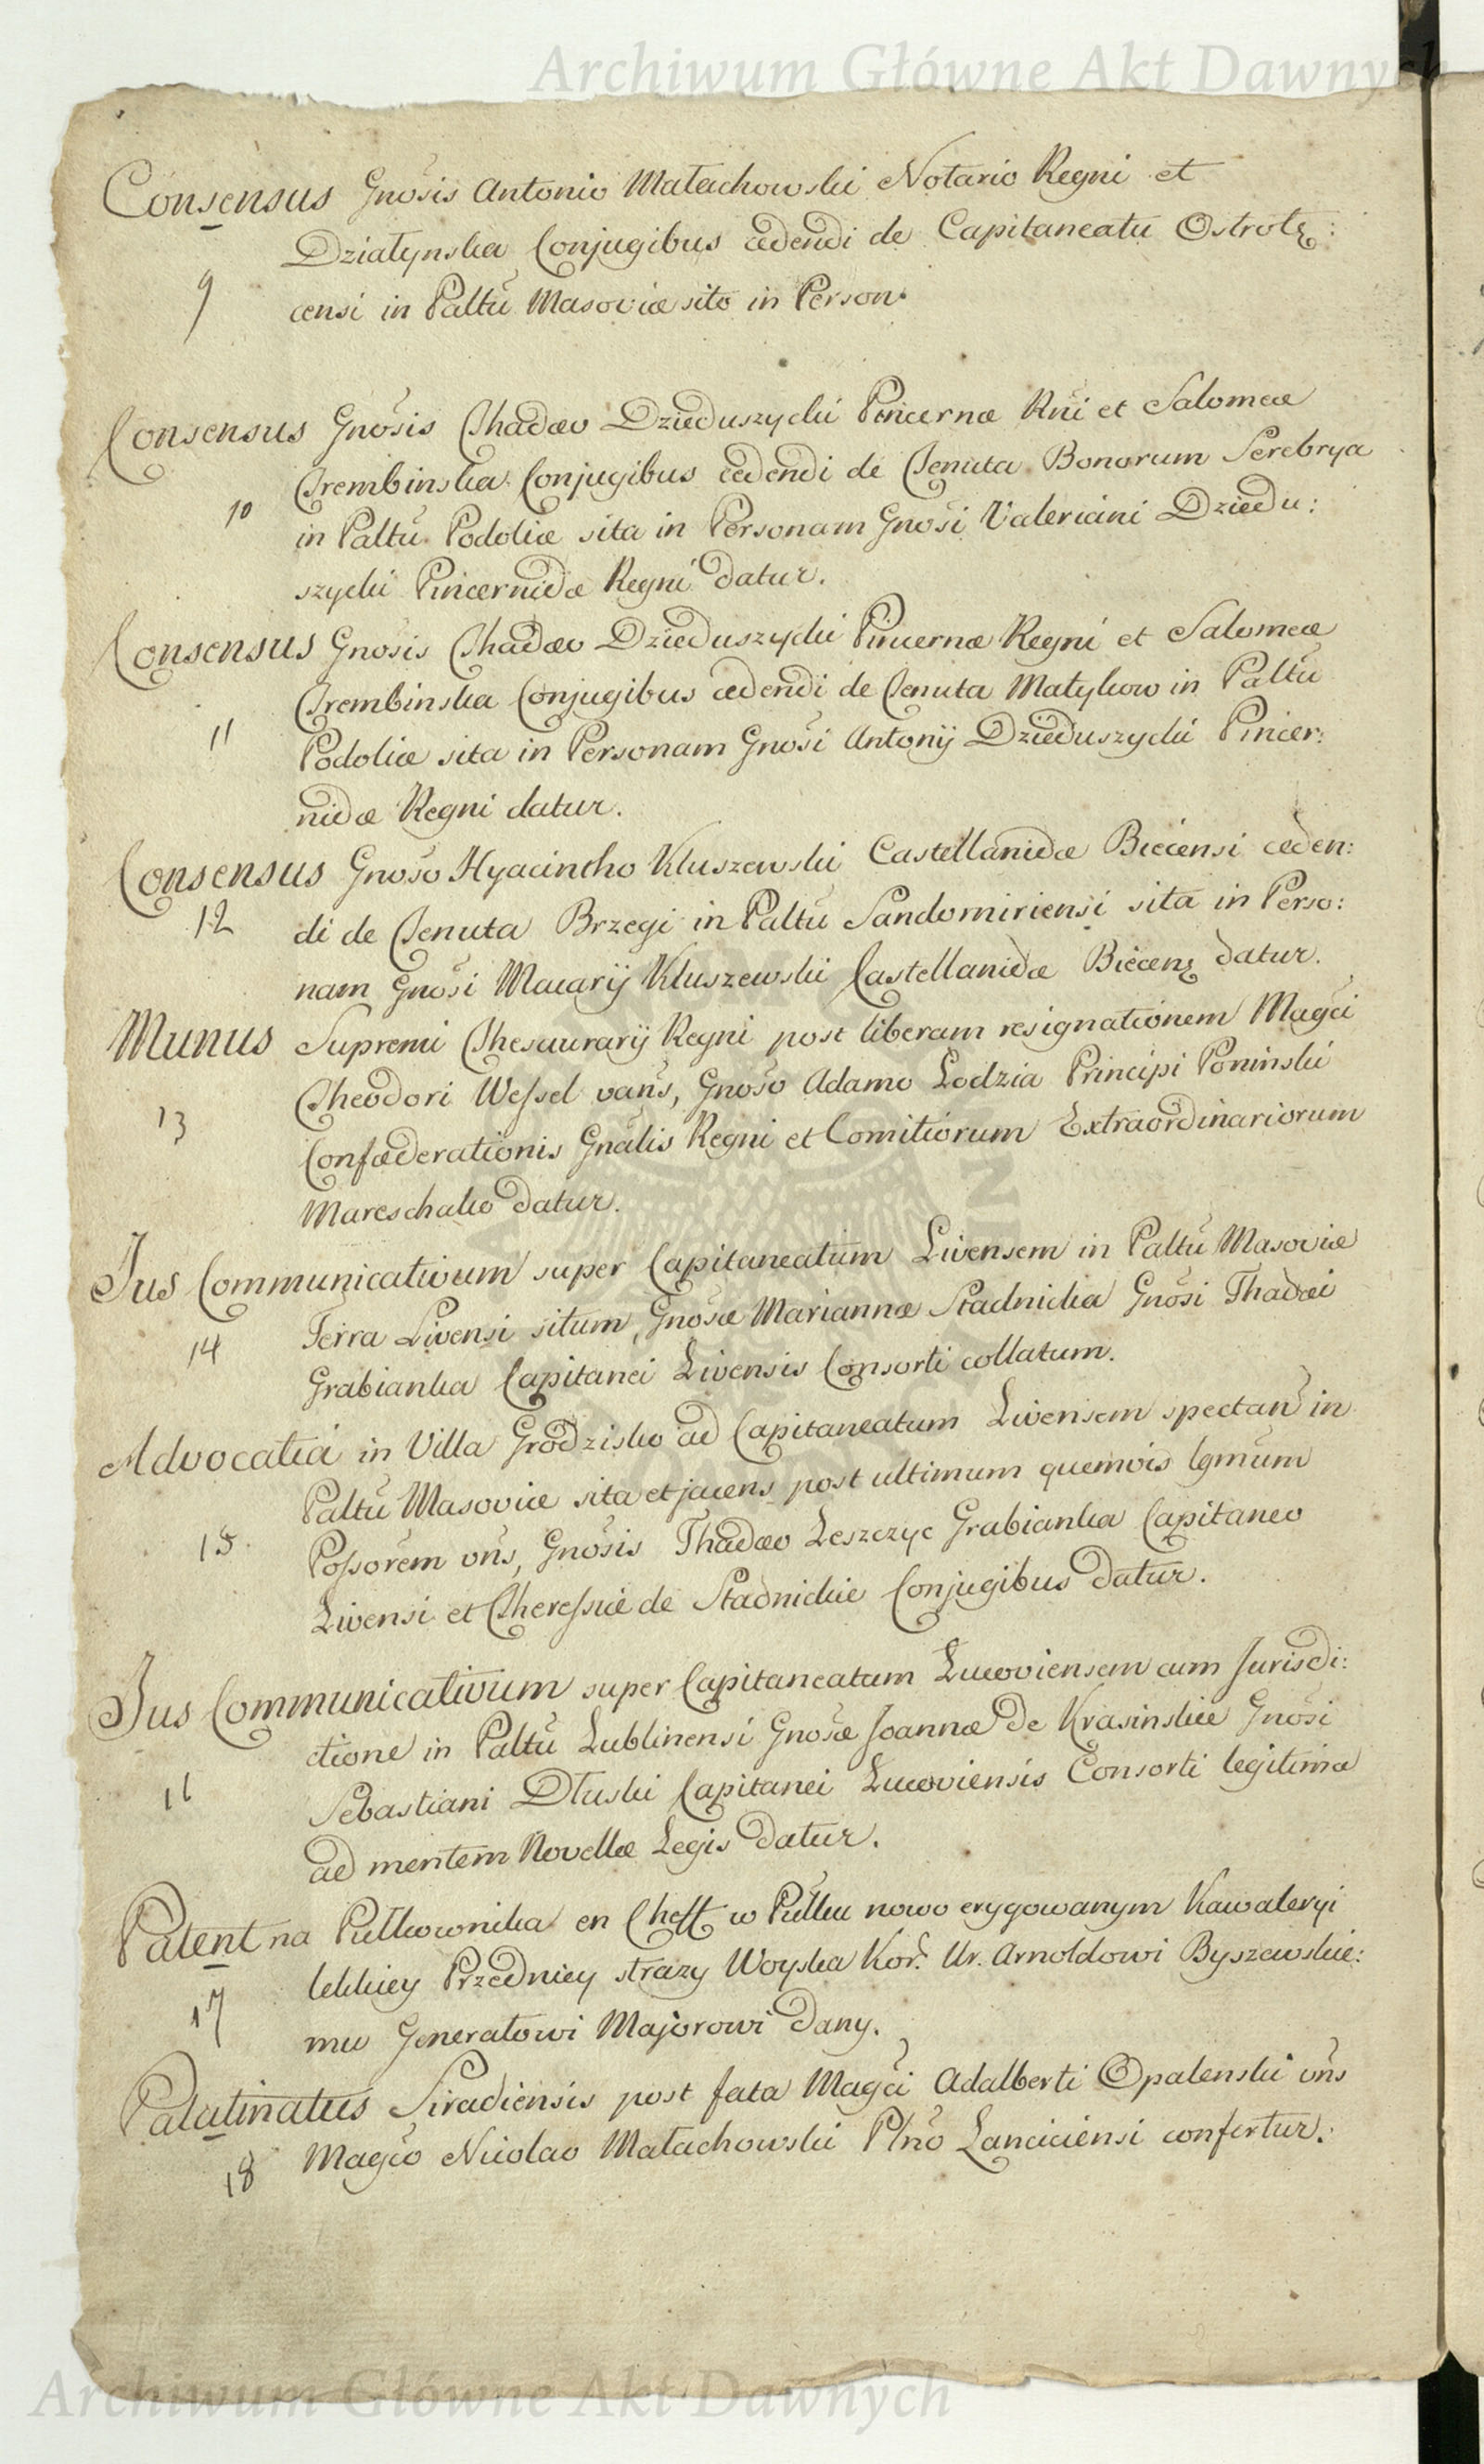 Archiwum Główne Akt Dawnych
Consensus Gnosis Antonio Małachowski Notario Regni et
Działynska Conjugibus cedendi de Capitaneatu Ostrołę:
9 censi in Paltu Masoviæ sito in Person.
Consensus Gnosis Thadæo Dzieduszycki Pincernæ Rni et Salomeæ
Trembinska Conjugibus cedendi de Tenuta Bonorum Serebrya
10 in Paltu Podoliæ sita in Personam Gnosi Valeriani Dziedu:
szycki Pincernidæ Regni datur.
Consensus Gnosis Thadæo Dzieduszycki Pincernæ Regni et Salomeæ
Trembinska Conjugibus cedendi de Tenuta Matykow in Paltu
11 Podoliæ sita in Personam Gnosi Antonij Dzieduszycki Pincer:
nidæ Regni datur.
Consensus Gnoso Hyacintho Kluszewski Castellanidæ Biecensi ceden:
12 di de Tenuta Brzegi in Paltu Sandomiriensi sita in Perso:
nam Gnosi Macarij Kluszewski Castellanidæ Biecens datur.
Munus Supremi Thesaurarij Regni post liberam resignationem Magci
13 Theodori Wessel vans, Gnoso Adamo Lodzia Principi Poninski
Confæderationis Gnalis Regni et Comitiorum Extraordinariorum
Mareschalco datur.
Jus Communicativum super Capitaneatum Livensem in Paltu Masoviæ
14 Terra Livensi situm, Gnosæ Mariannæ Stadnicka Gnosi Thadæi
Grabianka Capitanei Livensis Consorti collatum.
Advocatia in Villa Grodzisko ad Capitaneatum Livensem spectan in
Paltu Masoviæ sita et jacens post ultimum quemvis lgmum
15. Possorem vns, Gnosis Thadæo Leszczyc Grabianka Capitaneo
Livensi et Theressiæ de Stadnickie Conjugibus datur.
Jus Communicativum super Capitaneatum Lucoviensem cum Jurisdi:
ctione in Paltu Lublinensi Gnosæ Joannæ de Krasinskie Gnosi
16 Sebastiani Dłuski Capitanei Lucoviensis Consorti legitimæ
ad mentem Novellæ Legis datur.
Patent na Pułkownika en Cheff w Pułku nowo erygowanym Kawaleryi
17 lekkiey Przedniey strazy Woyska Kor. Ur. Arnoldowi Byszewskie:
mu Generałowi Majorowi Dany.
Palatinatus Siradiensis post fata Magci Adalberti Opalenski vns
18 Magco Nicolao Małachowski Plno Lanciciensi confertur.
Archiwum Główne Akt Dawnych